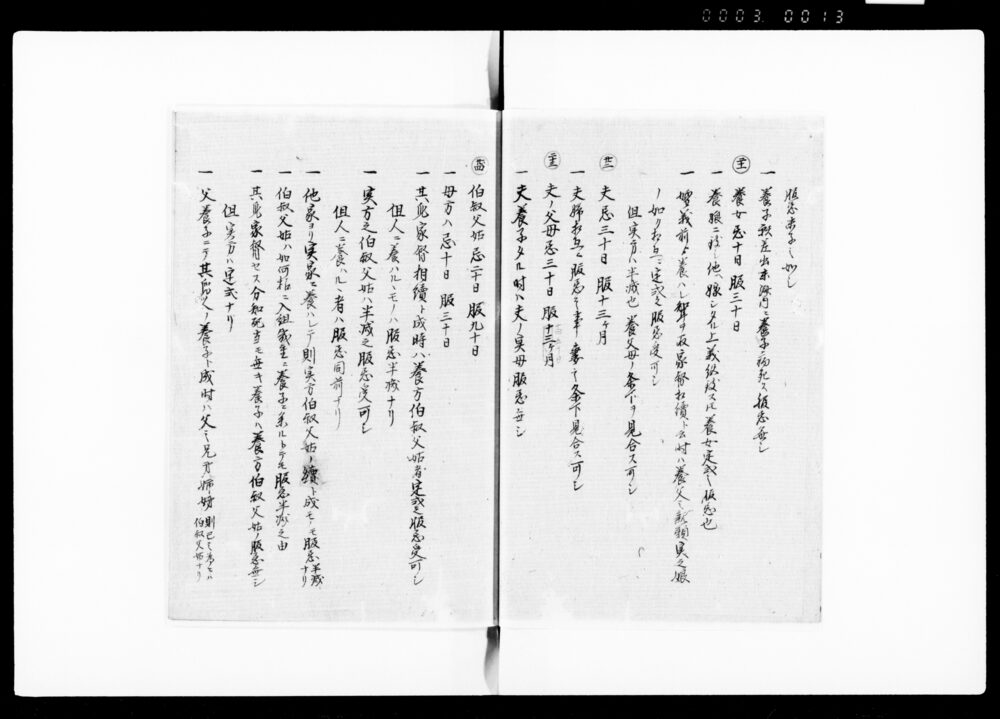 0003 0013
服忌末子ノ如シ
一 養子秋差出未済内ニ養子病死ス服忌無シ
養女忌十日 服三十日
一 養娘ニ致シ他ヘ嫁シタル上義絶致スル養女定式之服忌也
一 婿義前ヨリ養ハレ聟ヲ取家督相續ト云時ハ養父之親類実之娘
ノ如ク相互ニ定式之服忌受可シ
但実方ハ半減也 養父母ノ条下ヲ見合ス可シ
夫忌三十日 服十三ヶ月
一 夫婦相互ニ服忌之事 妻之条下見合ス可シ
夫ノ父母忌三十日 服十三ヶ月
一 夫養子タル時ハ夫ノ実母服忌無シ
伯叔父姑忌二十日 服九十日
一 母方ハ忌十日 服三十日
一 其児家督相續ト成時ハ養方伯叔父姑者定式之服忌受可シ
但人ニ養ハルヽモノハ服忌半減ナリ
一 実方之伯叔父姑ハ半減之服忌受可シ
但人ニ養ハルヽ者ハ服忌同前ナリ
一 他家ヨリ実家ニ養ハレテ則実方伯叔父姑ノ續ト成モノモ服忌半減ナリ
一 伯叔父姑ハ如何様ニ入組幾重ニ養子ニ来ルトテモ服忌半減之由
一 其児家督セス分知配当モ無キ養子ハ養方伯叔父姑ノ服忌無シ
但実方ハ定式ナリ
一 父養子ニテ其節父ノ養子ト成時ハ父之兄弟姉妹則已之為ニハ伯叔父姑ナリ